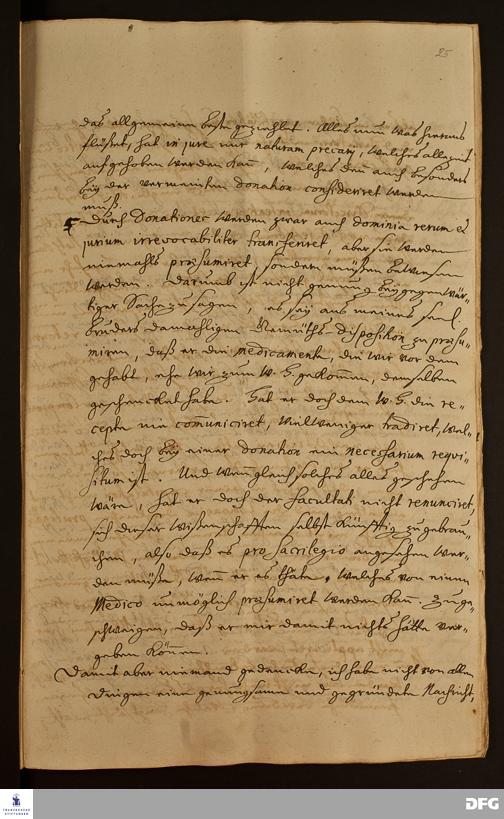 25
das allgemeine beste gezielet. Alles nun was hieraus
fließet, hat in jure nur naturam precarij, welches allezeit
aufgehoben werden kan, welches den auch besonders
bey der vermeinten donation consideriret werden
muß.
Durch Donationes werden zwar auch dominia rerum et
jurium irrevocabiliter transferiret, aber sie werden
niemahls præsumiret, sondern müßen bewiesen
werden. Darumb ist nicht genung bey gegenwär-
tiger Sache zu sagen, es sey aus meines seel.
Bruders damahligen Gemüths Disposition zu præsu-
miren, daß er die medicamente, die wir vor dem
gehabt, ehe wir zum W. H. gekommen, demselben
geschencket habe. Hat er doch dem W. H. die re-
cepte nie communiciret, vielweniger tradiret, wel-
ches doch bey einer donation ein necessarium requi-
situm ist. Und wenn gleich solches alles geschehen
wäre, hat er doch der facultati nicht renunciret,
sich dieser Wißenschafften selbst künfftig zu gebrau-
chen, also daß es pro sacrilegio angesehen wer-
den müste, wenn er es thäte, welches von einem
Medico unmöglich præsumiret werden kan. zu ge-
schweigen, daß er mir damit nichts hätte ver-
geben können.
Damit aber niemand gedencke, ich habe nicht von allen
Dingen eine genungsame und gegründete Nachricht,
FRANCKESCHE
STIFTUNGEN
DFG